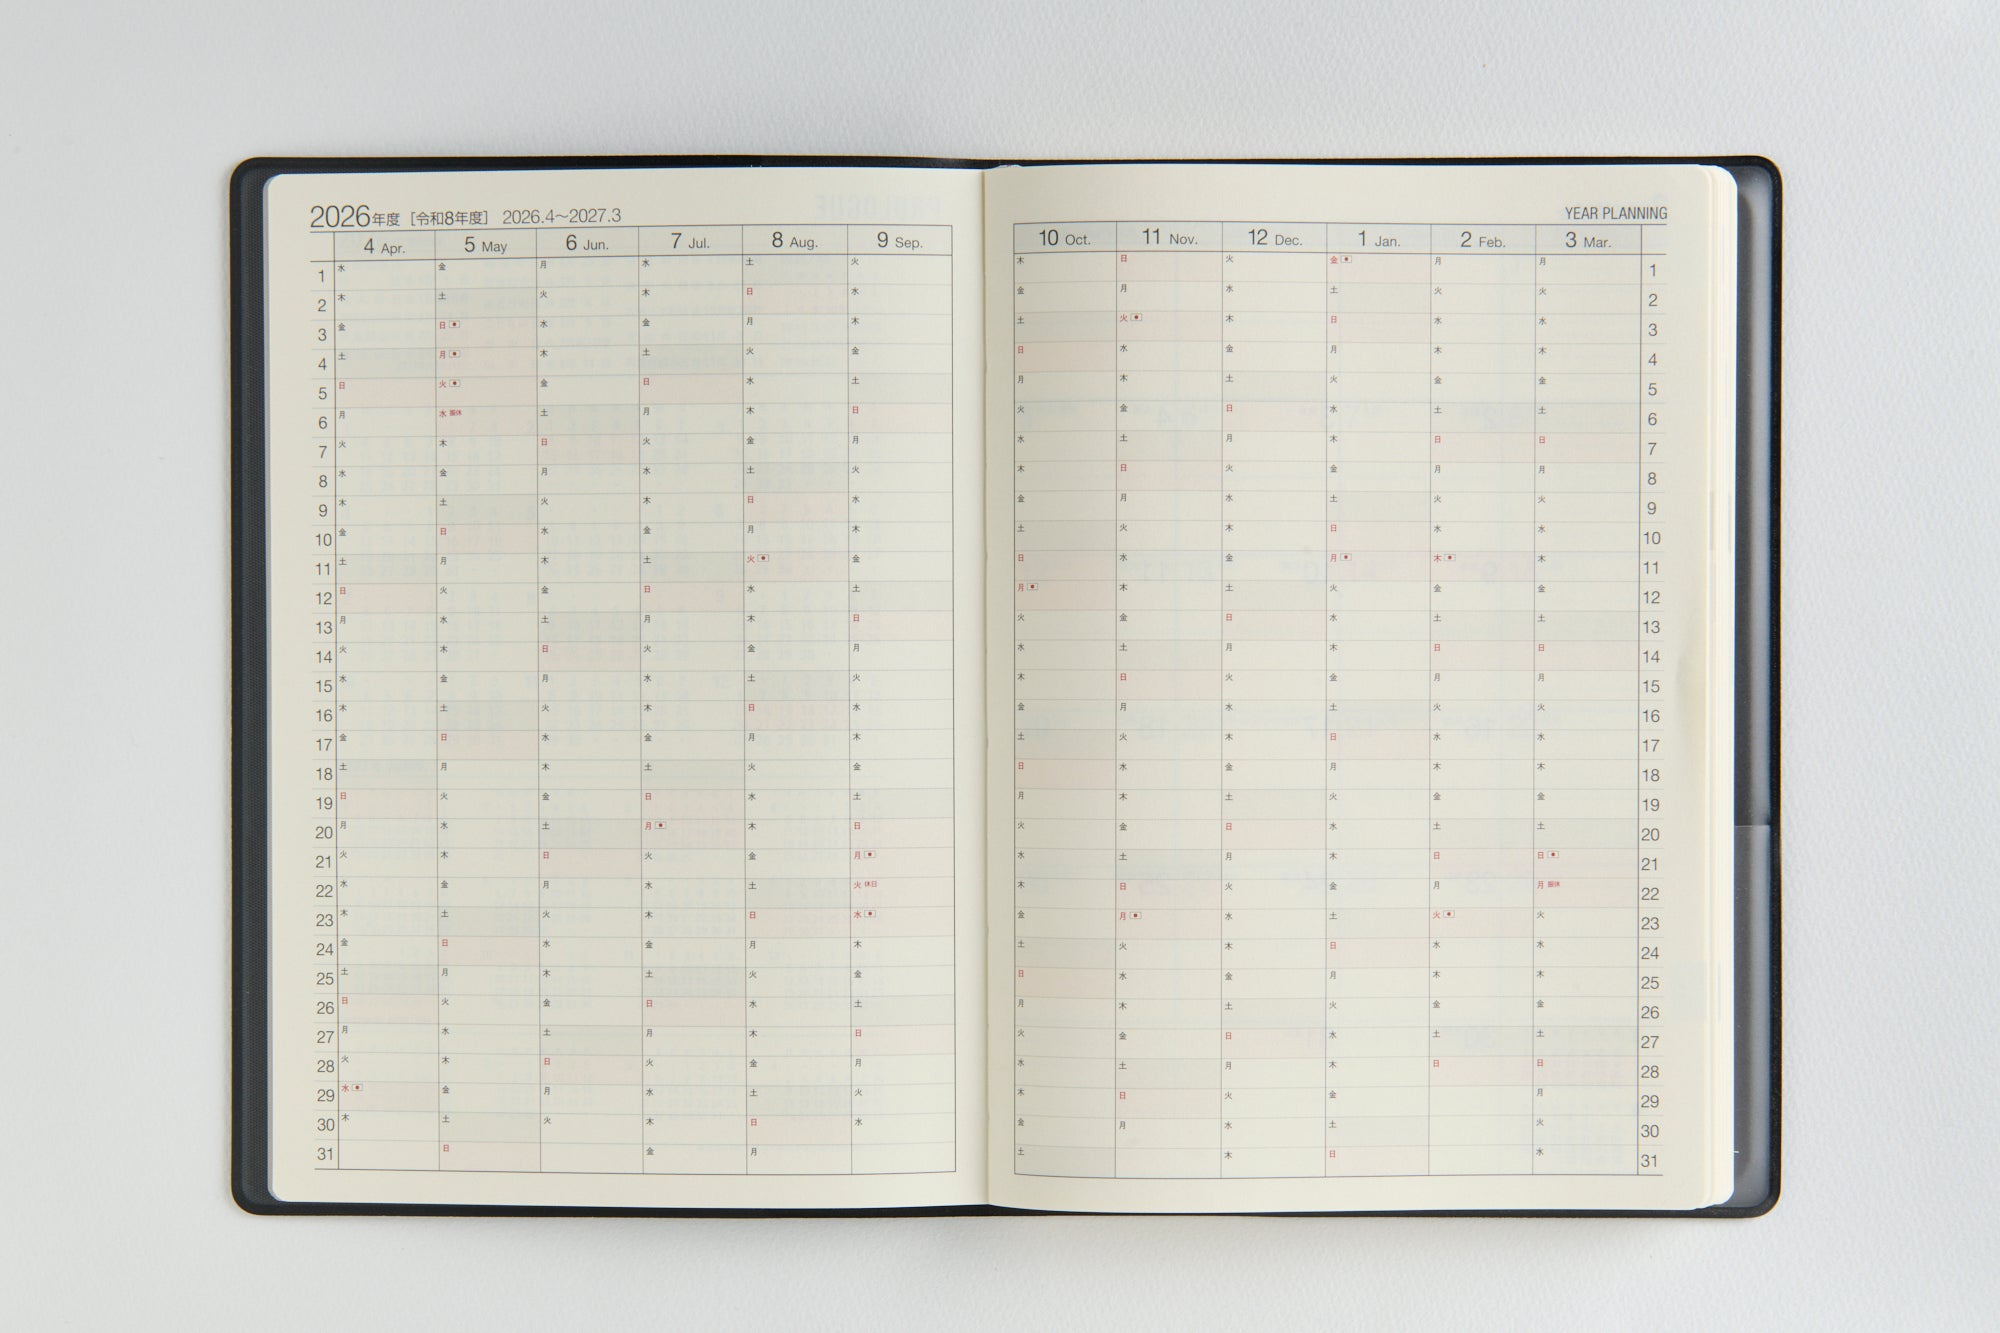 2026年度 [令和8年度] 2026.4〜2027.3
4 Apr. 5 May 6 Jun. 7 Jul. 8 Aug. 9 Sep.
1 水 金 月 水 土 火
2 木 土 火 木 日 水
3 金 日 水 金 月 木
4 土 月 木 土 火 金
5 日 火 金 日 水 土
6 月 水 振休 土 月 木 日
7 火 木 日 火 金 月
8 水 金 月 水 土 火
9 木 土 火 木 日 水
10 金 日 水 金 月 木
11 土 月 木 土 火 金
12 日 火 金 日 水 土
13 月 水 土 月 木 日
14 火 木 日 火 金 月
15 水 金 月 水 土 火
16 木 土 火 木 日 水
17 金 日 水 金 月 木
18 土 月 木 土 火 金
19 日 火 金 日 水 土
20 月 水 土 月 木 日
21 火 木 日 火 金 月
22 水 金 月 水 土 火 休日
23 木 土 火 木 日 水
24 金 日 水 金 月 木
25 土 月 木 土 火 金
26 日 火 金 日 水 土
27 月 水 土 月 木 日
28 火 木 日 火 金 月
29 水 金 月 水 土 火
30 木 土 火 木 日 水
31 日 金 月
YEAR PLANNING
10 Oct. 11 Nov. 12 Dec. 1 Jan. 2 Feb. 3 Mar.
木 日 火 金 月 月 1
金 月 水 土 火 火 2
土 火 木 日 水 水 3
日 水 金 月 木 木 4
月 木 土 火 金 金 5
火 金 日 水 土 土 6
水 土 月 木 日 日 7
木 日 火 金 月 月 8
金 月 水 土 火 火 9
土 火 木 日 水 水 10
日 水 金 月 木 木 11
月 木 土 火 金 金 12
火 金 日 水 土 土 13
水 土 月 木 日 日 14
木 日 火 金 月 月 15
金 月 水 土 火 火 16
土 火 木 日 水 水 17
日 水 金 月 木 木 18
月 木 土 火 金 金 19
火 金 日 水 土 土 20
水 土 月 木 日 日 21
木 日 火 金 月 月 振休 22
金 月 水 土 火 火 23
土 火 木 日 水 水 24
日 水 金 月 木 木 25
月 木 土 火 金 金 26
火 金 日 水 土 土 27
水 土 月 木 日 日 28
木 日 火 金 月 29
金 月 水 土 火 30
土 木 日 水 31